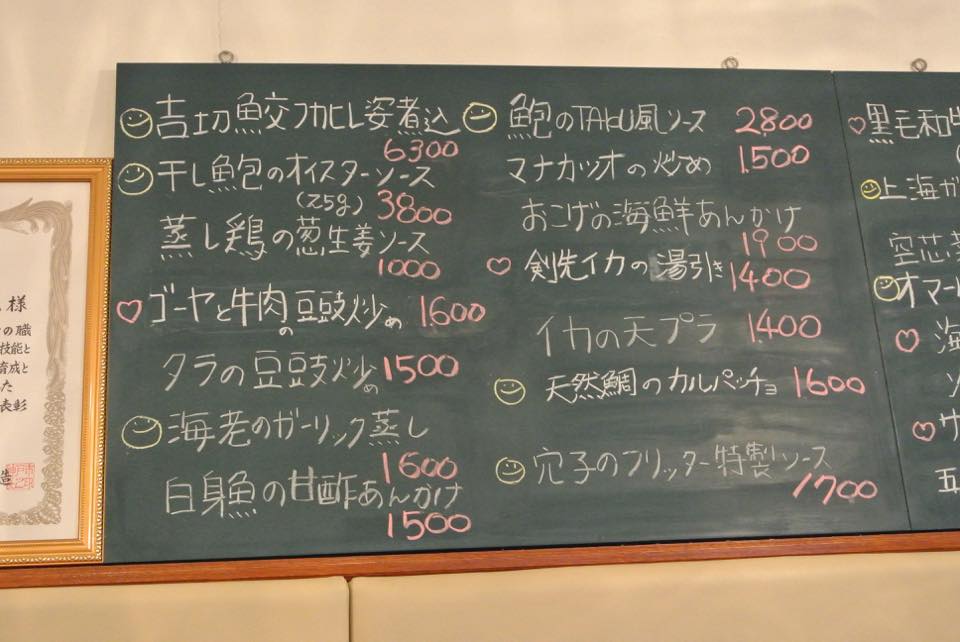 様
の職
技能と
育成と
た
表彰
造
吉切鮫フカヒレ姿煮込
6300
干し鮑のオイスターソース
(25g) 3800
蒸し鶏の葱生姜ソース
1000
ゴーヤと牛肉の豆豉炒め 1.600
タラの豆豉炒め 1500
海老のガーリック蒸し
1600
白身魚の甘酢あんかけ
1500
鮑のTAKU風ソース 2.800
マナカツオの炒め 1.500
おこげの海鮮あんかけ
1900
剣先イカの湯引き 1400
イカの天プラ 1.400
天然鯛のカルパッチョ 1600
穴子のフリッター特製ソース
1700
黒毛和牛
上海ガ
空芯菜
オマール
海
ソ
サ
五